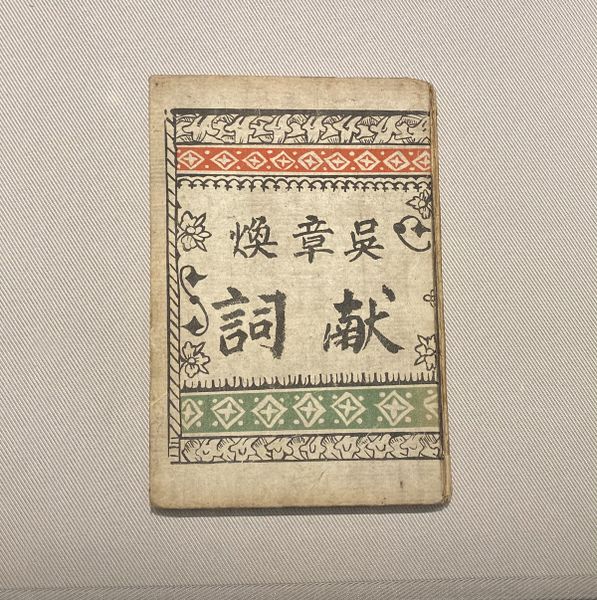 吳章煥
献詞